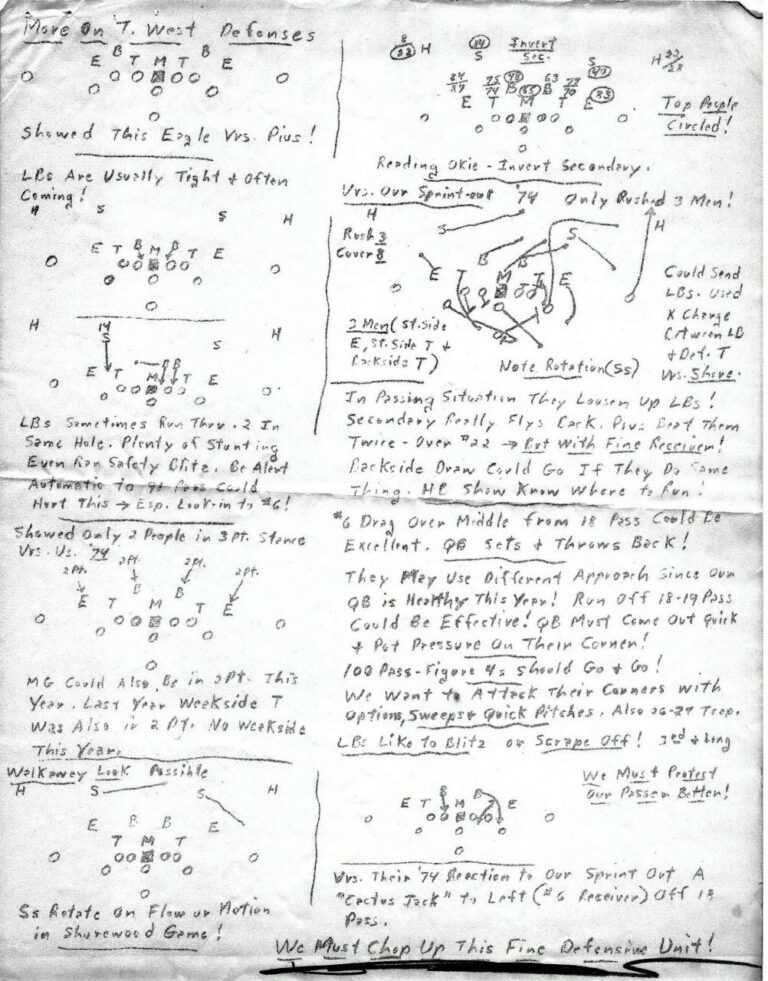 More On T. West Defenses
B B
E T M T E
Showed This Eagle Vrs. Pius!
LBs Are Usually Tight & Often
Coming!
H S S H
E T B M B T E
H 14 S S H
E T B B
M T E
LBs Sometimes Run Thru. 2 In
Same Hole. Plenty of Stunting
Even Ran Safety Blitz. Be Alert
Automatic to 91 Pass Could
Hurt This → Esp. Look-in to #6!
Showed Only 2 People in 3 Pt. Stance
Vrs. Us. '74
2 Pt. 2 Pt. 2 Pt. 2 Pt.
B B
E T M T E
MG Could Also Be in 2 Pt. This
Year. Last Year Weakside T
Was Also in 2 Pt. No Weakside
This Year.
Walkaway Look Possible
H S S H
E B B E
T M T
Ss Rotate On Flow or Motion
in Shorewood Game!
H 14 S Invert Sec. S H
E T B M B T E
Top People
Circled!
Reading Okie - Invert Secondary.
Vrs. Our Sprint-out '74 Only Rushed 3 Men!
H S S H
Rush 3
Cover 8
E T B M B T E
2 Men (St. Side
E, St. Side T &
Backside T)
Note Rotation (Ss)
Could Send
LBs. Used
X Charge
Between LB
& Def. T
Vrs. Shore.
In Passing Situation They Loosen Up LBs!
Secondary Really Flys Back. Pius Beat Them
Twice - Over #22 → But With Fine Receiver!
Backside Draw Could Go If They Do Same
Thing. HB Show Know Where to Run!
#6 Drag Over Middle from 18 Pass Could Be
Excellent. QB Sets & Throws Back!
They May Use Different Approach Since Our
QB is Healthy This Year! Run Off 18-19 Pass
Could Be Effective! QB Must Come Out Quick
& Put Pressure On Their Corner!
100 Pass - Figure 4s Should Go & Go!
We Want to Attack Their Corners with
Options, Sweeps & Quick Pitches. Also 26-27 Trap.
LBs Like To Blitz or Scrape Off! 3rd & Long
We Must Protect
Our Passer Better!
B B
E T M T E
Vrs. Their '74 Reaction to Our Sprint Out A
"Cactus Jack" to Left (#6 Receiver) Off 18
Pass.
We Must Chop Up This Fine Defensive Unit!